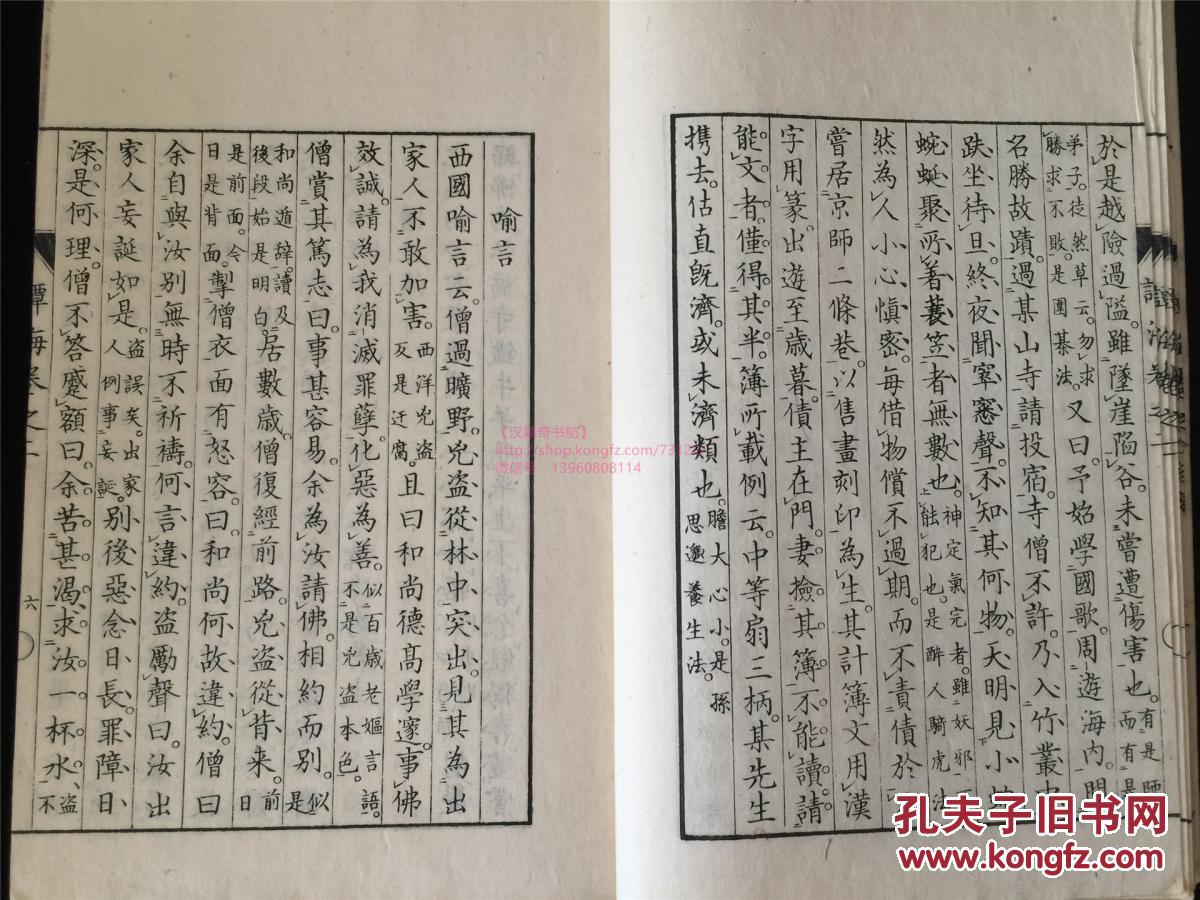 於是越險過隘。雖墜崖陷谷。未嘗遭傷害也。有是師而有是
弟子。徒然草云。勿求勝求不敗。是圍棊法。又曰。予始學國歌。周遊海内。問
名勝故蹟。過某山寺請投宿。寺僧不許。乃入竹叢中
趺坐待旦。終夜聞窣窸聲。不知其何物。天明見小
蜿蜒聚所著蓑笠者無數也。神定氣完者。雖妖邪不能犯也。是醉人騎虎法
然為人小心慎密。每借物償不過期。而不責債於
嘗居京師二條巷。以售畫刻印為生。其計簿文用漢
字用篆。出遊至歲暮。債主在門。妻撿其簿。不能讀。請
能文者。僅得其半。簿所載例云。中等扇三柄。某先生
携去。估直既濟。或未濟類也。膽大心小。是孫思邈養生法。
喻言
西國喻言云。僧過曠野。兇盜從林中突出。見其為出
家人。不敢加害。西洋兇盜反是迂腐。且曰。和尚德高學邃。事佛
效誠。請為我消滅罪孽。化惡為善。似百歳老嫗言語。不是兇盜本色。
僧賞其篤志曰。事甚容易。余為汝請佛。相約而別。是似
和尚遁辞。讀及後段。始是明白。居數歲。僧復經前路。兇盜從背来。前日
是前面。今日是背面。掣僧衣。面有怒容。曰。和尚何故違約。僧曰
余自與汝別。無時不祈禱。何言違約。盜勵聲曰。汝出
家人妄誕如是。盜誤矣。出家人例事妄誕。別後惡念日長。罪障日
深。是何理。僧不答。蹙額曰。余苦甚渴。求汝一杯水。盜不
譚海卷之二
六
【汉籍奇书舫】
https://shop.kongfz.com/7312
微信号：13960808114
孔夫子旧书网
www.kongfz.com